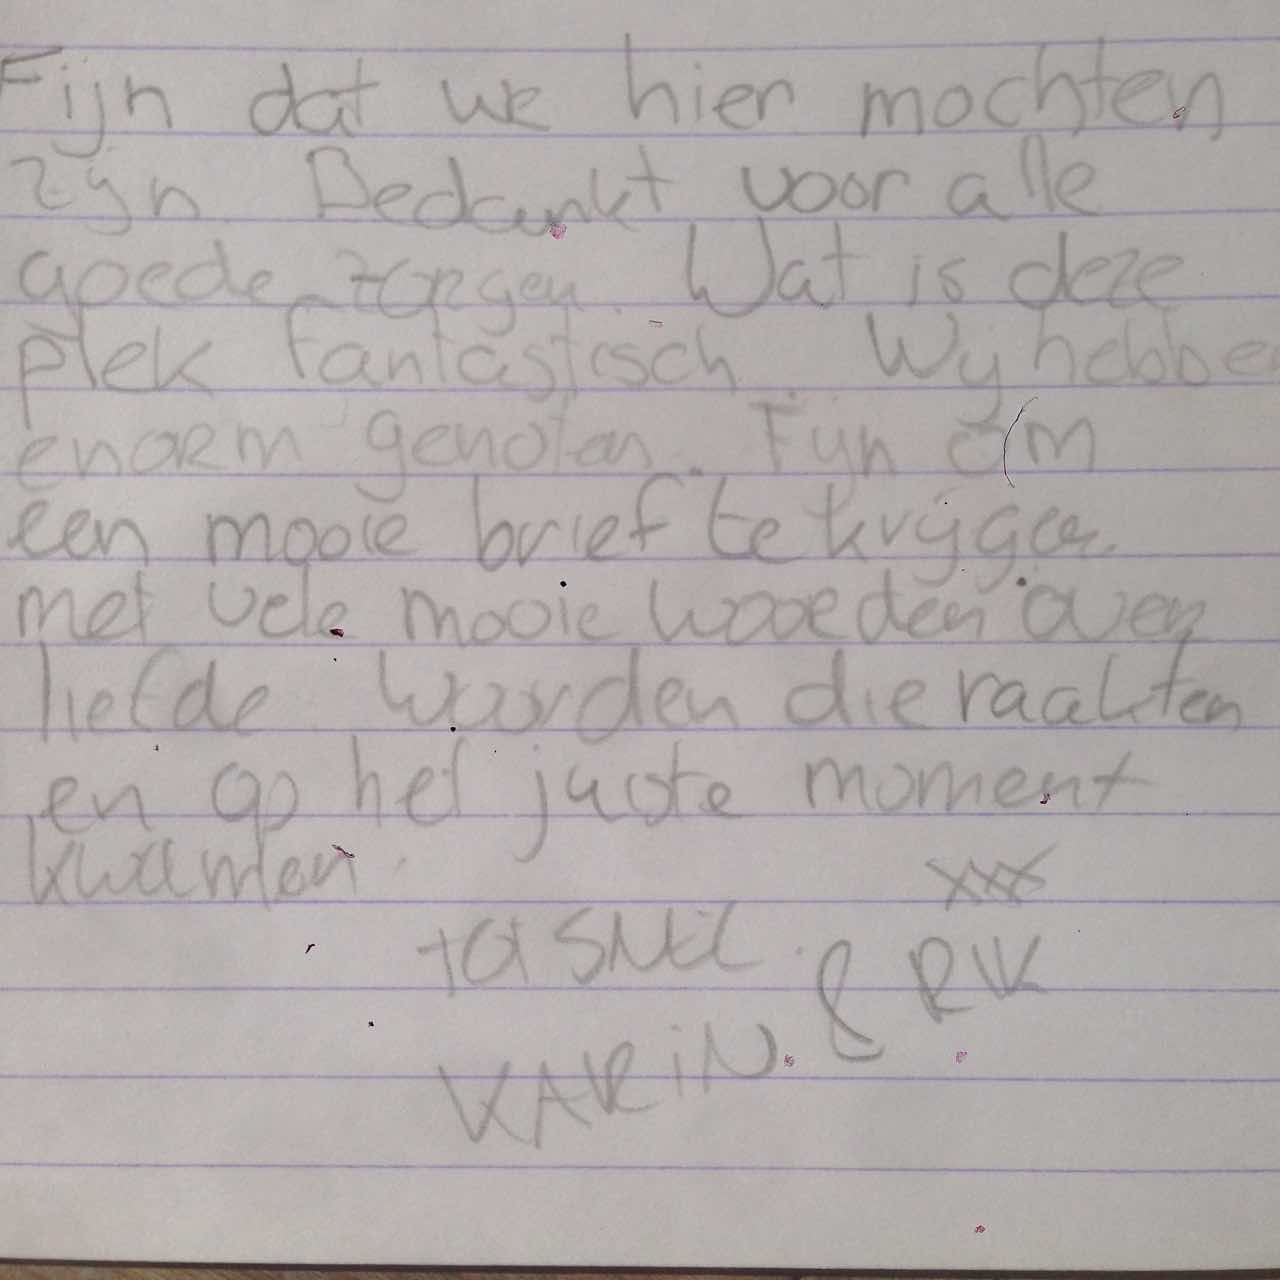 Fijn dat we hier mochten
zijn. Bedankt voor alle
goede zorgen. Wat is deze
plek fantastisch. Wij hebben
enorm genoten. Fijn om
een mooie brief te krijgen
met vele mooie woorden over
liefde. Woorden die raakten
en op het juiste moment
kwamen.
xxx
& RIK
KARiN.